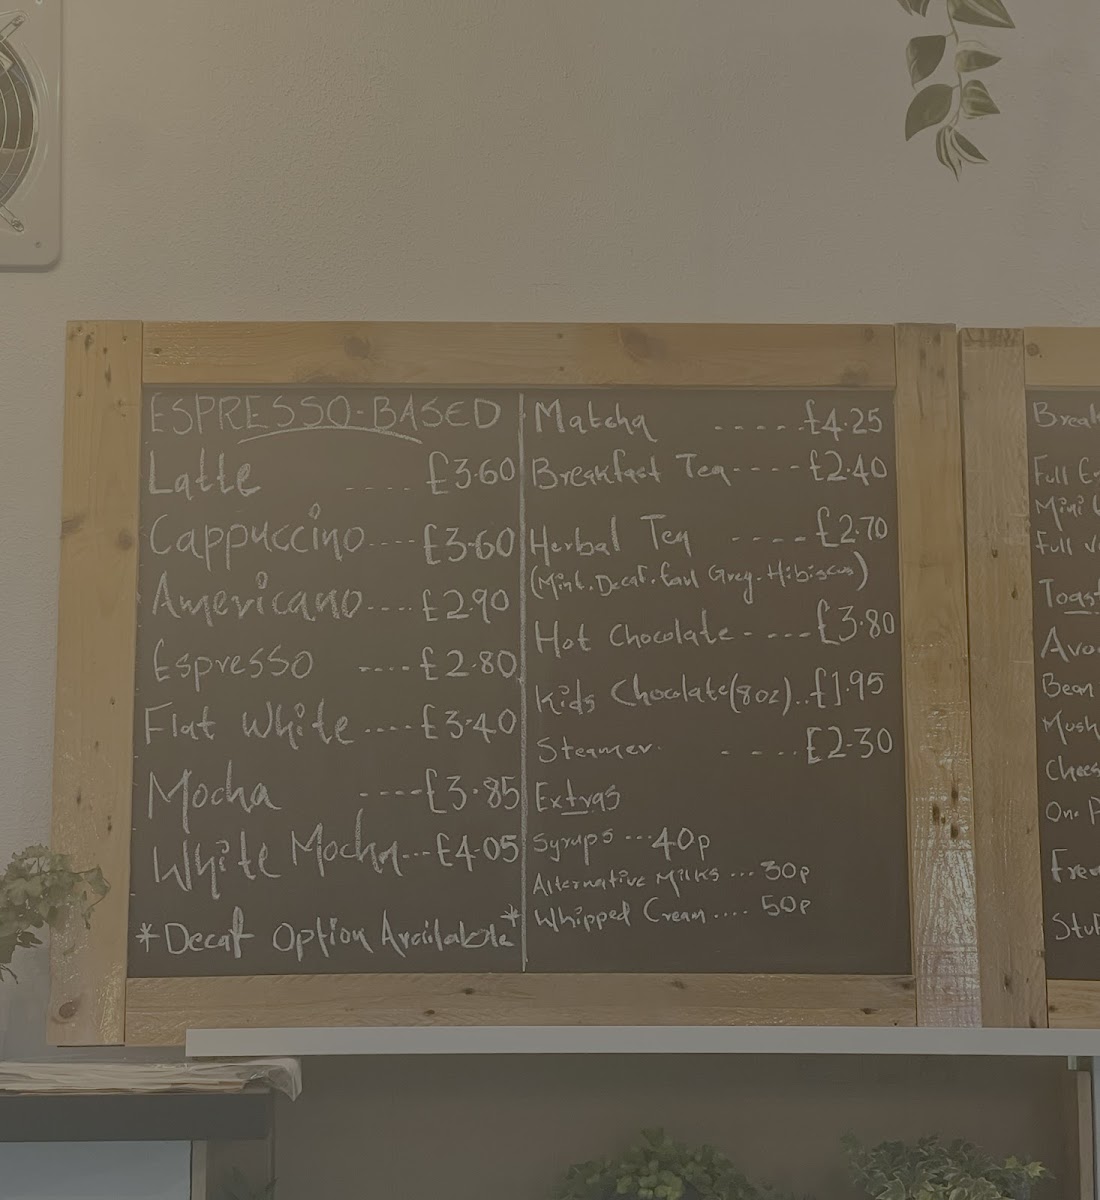 ESPRESSO-BASED
Latte .... £3.60
Cappuccino.... £3.60
Americano.... £2.90
Espresso ....£2.80
Flat White ....£3.40
Mocha ....£3.85
White Mocha...£4.05
*Decaf Option Available*
Matcha ......£4.25
Breakfast Tea....£2.40
Herbal Tea ....£2.70
(Mint.Decaf.Earl Grey.Hibiscus)
Hot Chocolate.....£3.80
Kids Chocolate(8oz)..£1.95
Steamer. .....£2.30
Extras
Syrups ...40p
Alternative Milks ...30p
Whipped Cream.... 50p
Full
Mini
Full
Toast
Bean